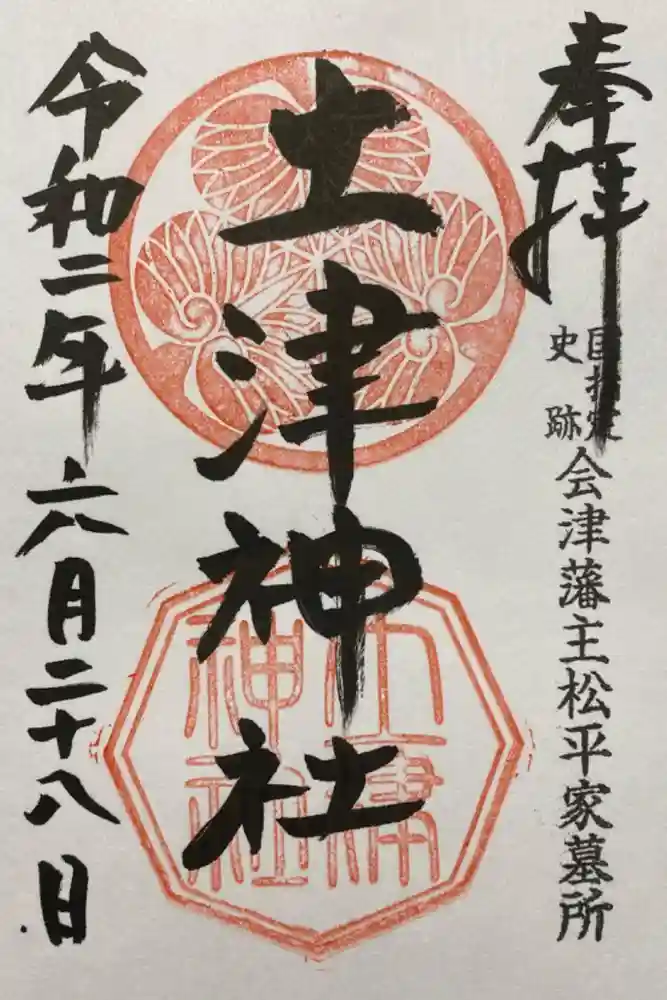 奉拝
国指定
史跡
会津藩主松平家墓所
土津神社
土津
神社
令和二年六月二十八日